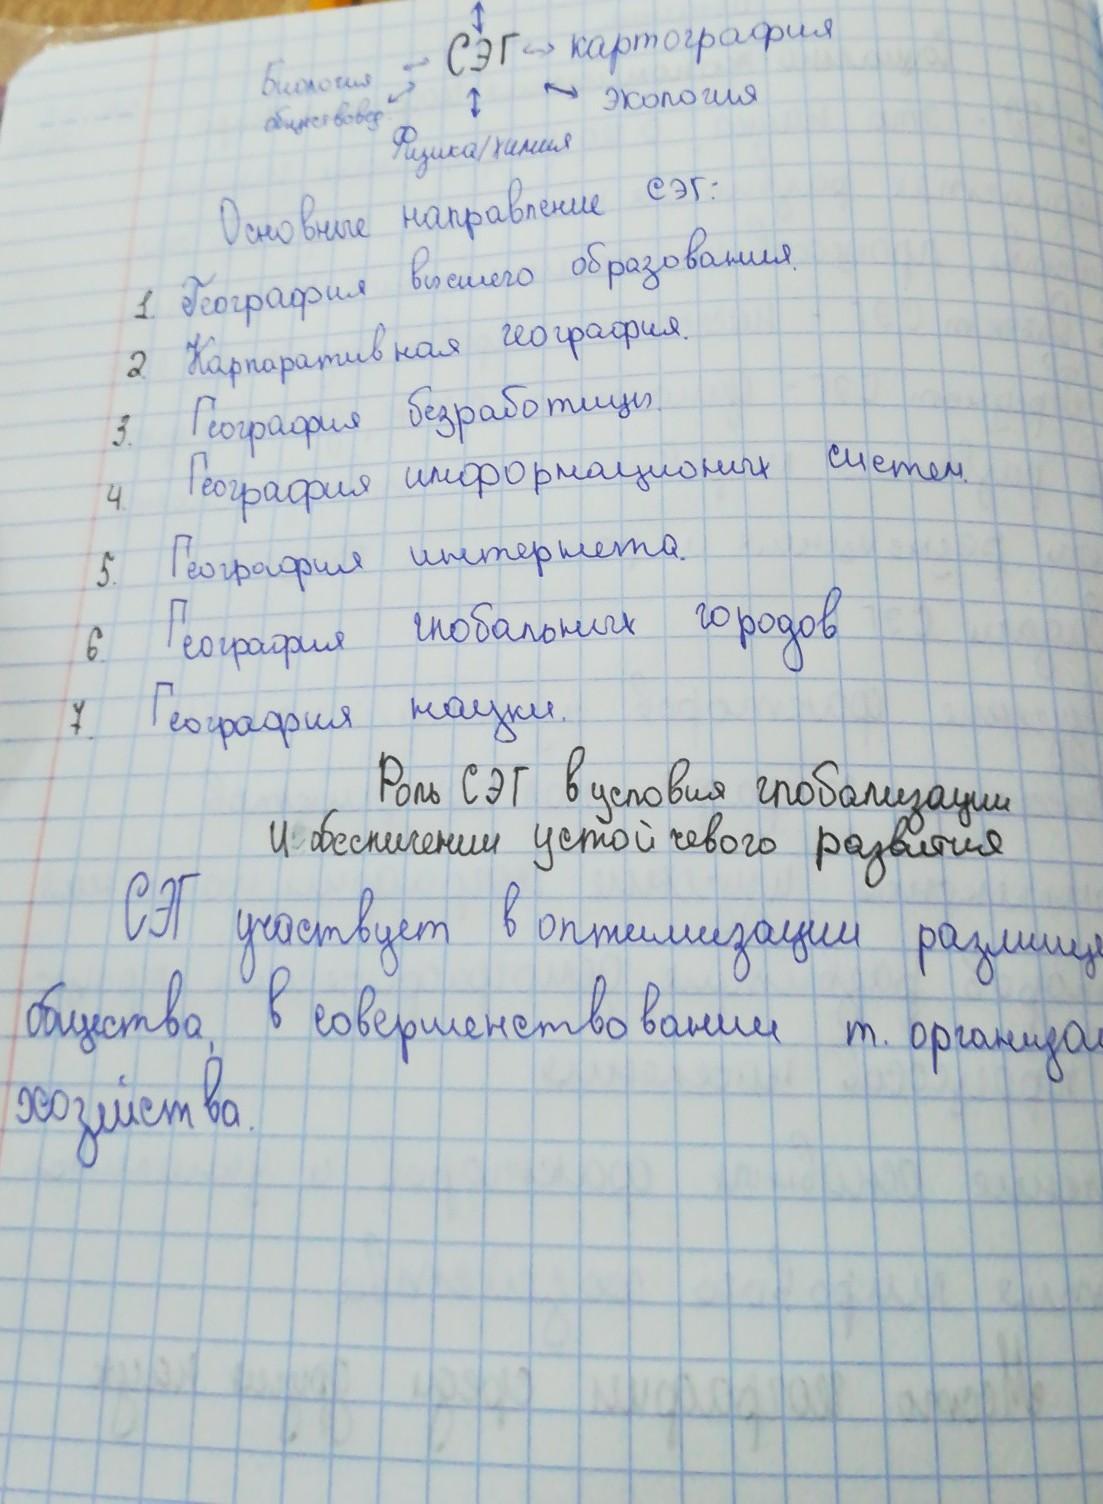 СЭГ картография
Биология
обществовед.
экология
Физика/химия
Основные направление СЭГ:
1. География высшего образования.
2 Карпаративная география.
3. География безработицы.
4 География информационых систем.
5. География интернета.
6. География глобальных городов
7. География науки.
Роль СЭГ в условия глобализации
и обеспичении устойчевого развития
СЭГ участвует в оптимизации размище
общества, в совершенствовании т. организа
хозяйства.